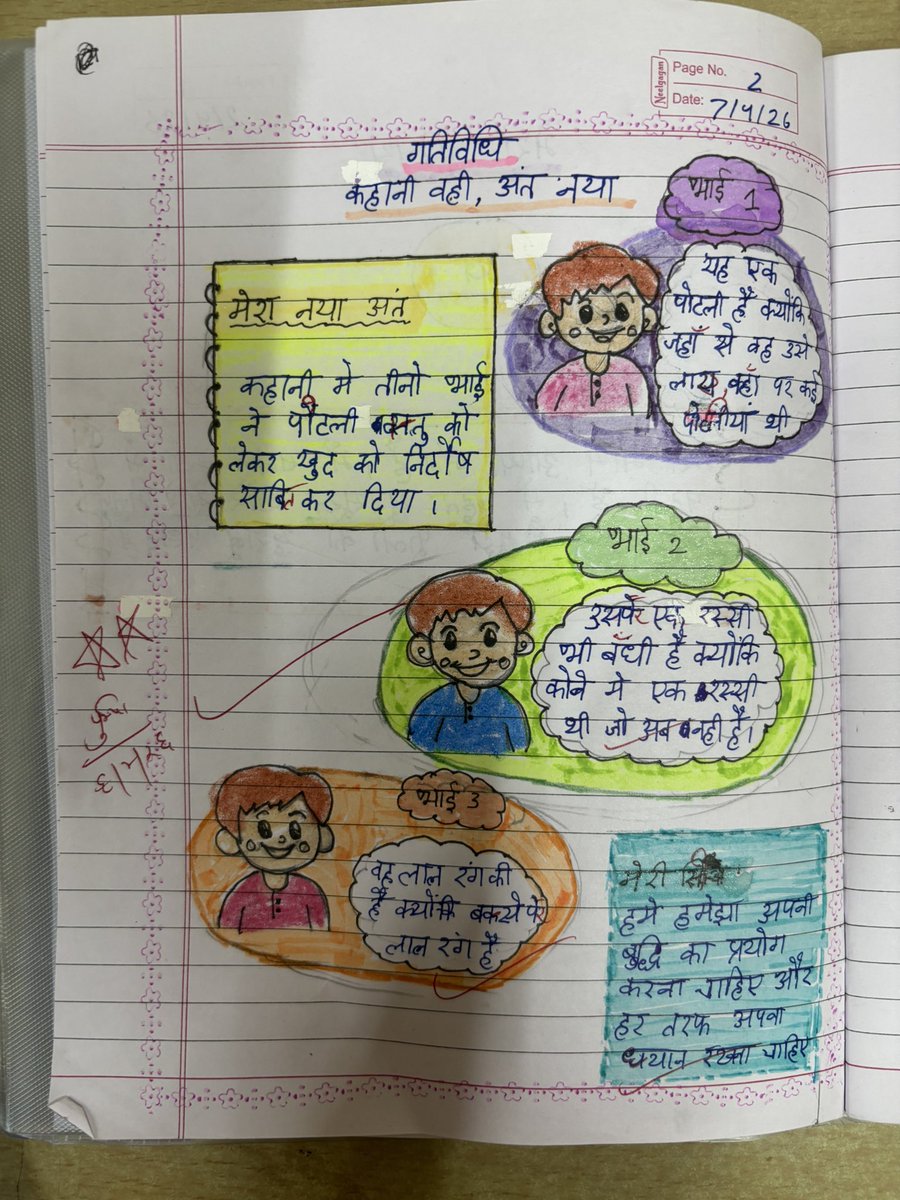 Neelgagan
Page No. 2
Date: 7/4/26
गतिविधि
कहानी वही, अंत नया
भाई 1
यह एक
पोटली है क्योंकि
जहाँ से वह उसे
लाए वहाँ पर कई
पोटलीयां थी
मेरा नया अंत
कहानी मे तीनो भाई
ने पोटली वस्तु को
लेकर खुद को निर्दोष
साबित कर दिया ।
भाई 2
उसपे एक रस्सी
भी बँधी है क्योंकि
कोने मे एक रस्सी
थी जो अब नही है।
भाई 3
वह लाल रंग की
है क्योंकि बकसे पे
लाल रंग है
मेरी
हमे हमेशा अपनी
बुद्धि का प्रयोग
करना चाहिए और
हर तरफ अपना
ध्यान रखना चाहिए